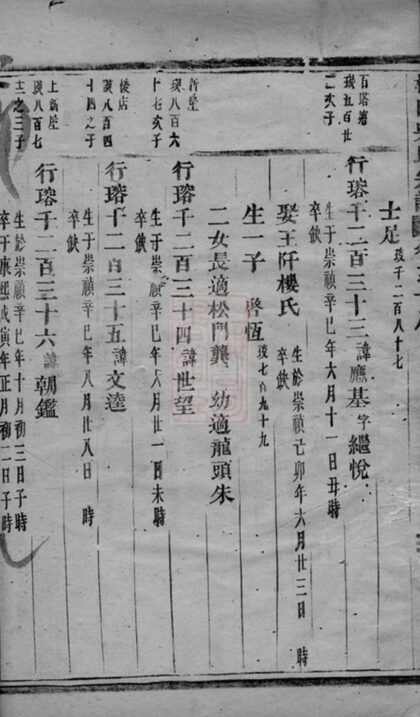 士足 琰千二百八十七
百塔塘
琰五百廿
二次子
行瑢千二百三十三 諱應基 字繼悅
生于崇禎辛巳年六月十一日丑時
卒缺
娶王阡樓氏 生於崇禎己卯年六月廿三日 時
卒缺
生一子 啓恆 琰七百九十九
二女長適松門龔 幼適龍頭朱
新屋
琰八百六
十七次子
行瑢千二百三十四 諱世望
生于崇禎辛巳年六月廿一日未時
卒缺
後店
琰八百四
十四之子
行瑢千二百三十五 諱文逵
生于崇禎辛巳年八月廿八日 時
卒缺
上新屋
琰八百七
十之三子
行瑢千二百三十六 諱朝鑑
生於崇禎辛巳年十月初三日子時
卒于康熙戊寅年正月初二日子時